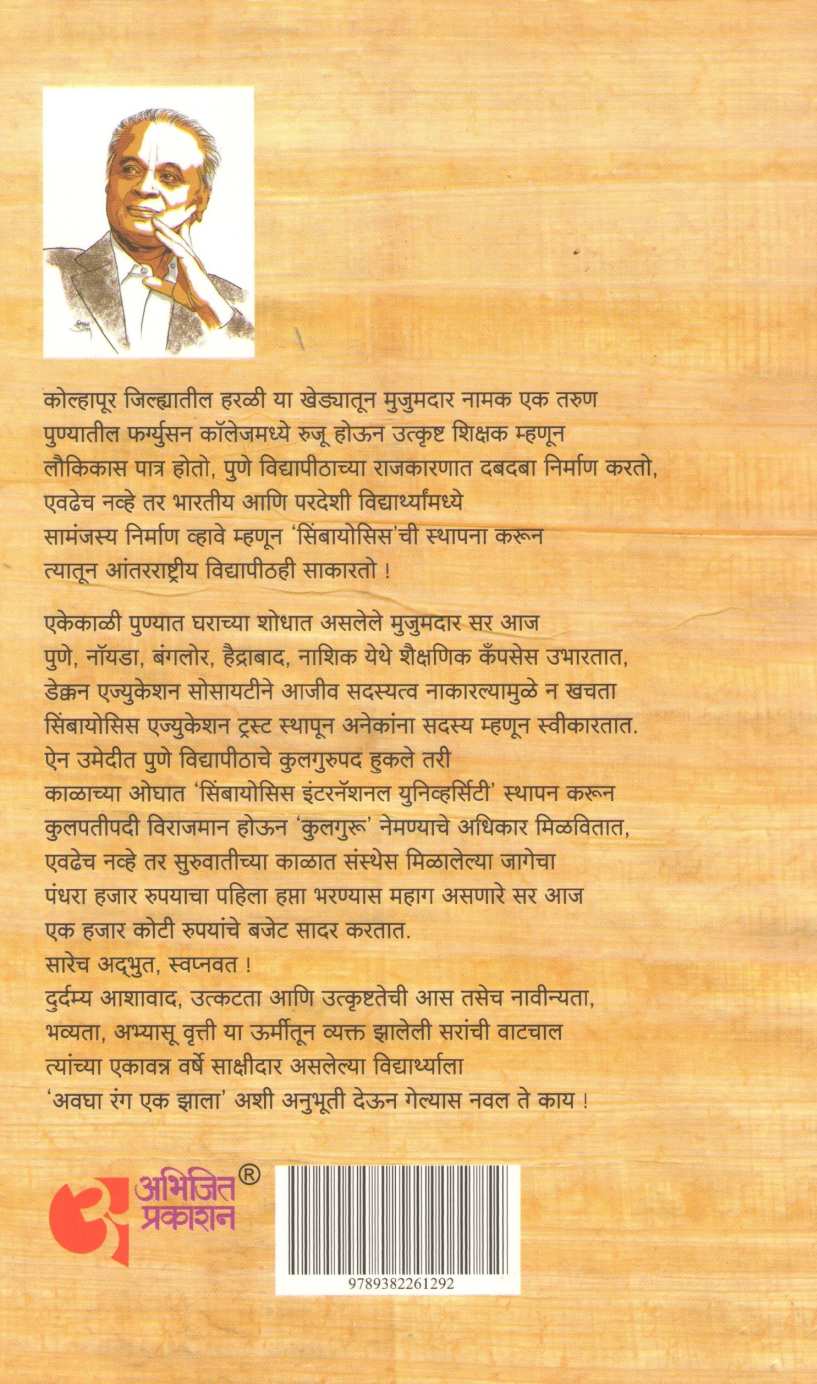 कोल्हापूर जिल्ह्यातील हरळी या खेड्यातून मुजुमदार नामक एक तरुण
पुण्यातील फर्ग्युसन कॉलेजमध्ये रुजू होऊन उत्कृष्ट शिक्षक म्हणून
लौकिकास पात्र होतो, पुणे विद्यापीठाच्या राजकारणात दबदबा निर्माण करतो,
एवढेच नव्हे तर भारतीय आणि परदेशी विद्यार्थ्यांमध्ये
सामंजस्य निर्माण व्हावे म्हणून ‘सिंबायोसिस’ची स्थापना करून
त्यातून आंतरराष्ट्रीय विद्यापीठही साकारतो !
एकेकाळी पुण्यात घराच्या शोधात असलेले मुजुमदार सर आज
पुणे, नॉयडा, बंगलोर, हैद्राबाद, नाशिक येथे शैक्षणिक कँपसेस उभारतात,
डेक्कन एज्युकेशन सोसायटीने आजीव सदस्यत्व नाकारल्यामुळे न खचता
सिंबायोसिस एज्युकेशन ट्रस्ट स्थापून अनेकांना सदस्य म्हणून स्वीकारतात.
ऐन उमेदीत पुणे विद्यापीठाचे कुलगुरुपद हुकले तरी
काळाच्या ओघात ‘सिंबायोसिस इंटरनॅशनल युनिव्हर्सिटी’ स्थापन करून
कुलपतीपदी विराजमान होऊन ‘कुलगुरू’ नेमण्याचे अधिकार मिळवितात,
एवढेच नव्हे तर सुरुवातीच्या काळात संस्थेस मिळालेल्या जागेचा
पंधरा हजार रुपयाचा पहिला हप्ता भरण्यास महाग असणारे सर आज
एक हजार कोटी रुपयांचे बजेट सादर करतात.
सारेच अद्‌भुत, स्वप्नवत !
दुर्दम्य आशावाद, उत्कटता आणि उत्कृष्टतेची आस तसेच नावीन्यता,
भव्यता, अभ्यासू वृत्ती या ऊर्मीतून व्यक्त झालेली सरांची वाटचाल
त्यांच्या एकावन्न वर्षे साक्षीदार असलेल्या विद्यार्थ्याला
‘अवघा रंग एक झाला’ अशी अनुभूती देऊन गेल्यास नवल ते काय !
अभिजित®
प्रकाशन
9789382261292